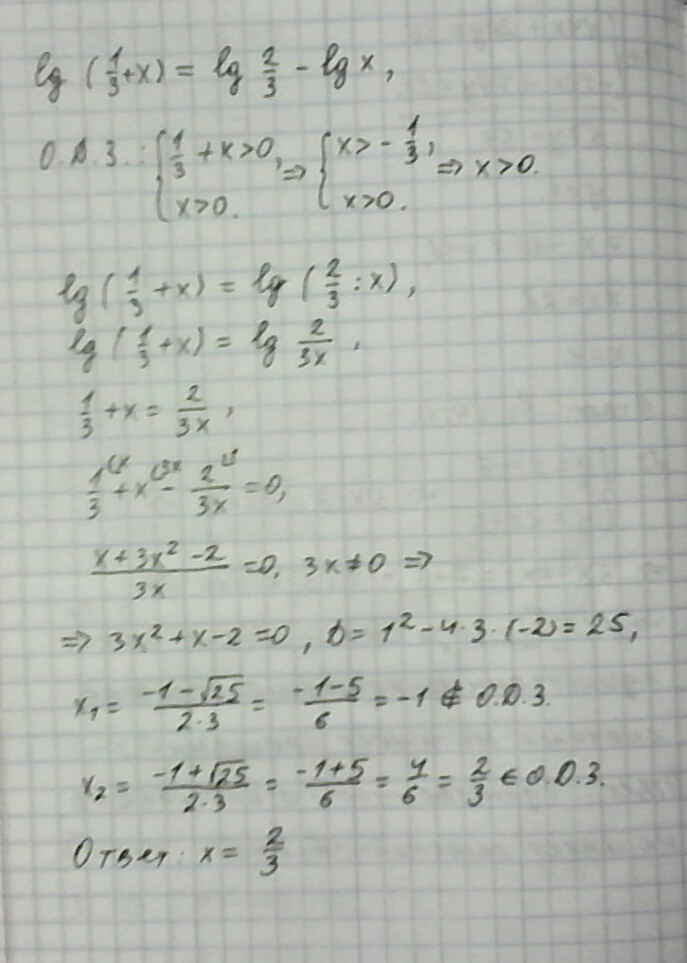 lg (1/3 + x) = lg 2/3 - lg x,
О.Д.З.: { 1/3 + x > 0, x > 0. ⇒ { x > -1/3, x > 0. ⇒ x > 0.
lg (1/3 + x) = lg (2/3 : x),
lg (1/3 + x) = lg 2/3x,
1/3 + x = 2/3x,
1/3 (x + x (3x - 2/3x (1 = 0,
x + 3x² - 2 / 3x = 0, 3x ≠ 0 ⇒
⇒ 3x² + x - 2 = 0, D = 1² - 4 · 3 · (-2) = 25,
x₁ = -1 - √25 / 2·3 = -1 - 5 / 6 = -1 ∉ О.Д.З.
x₂ = -1 + √25 / 2·3 = -1 + 5 / 6 = 4/6 = 2/3 ∈ О.Д.З.
Ответ: x = 2/3